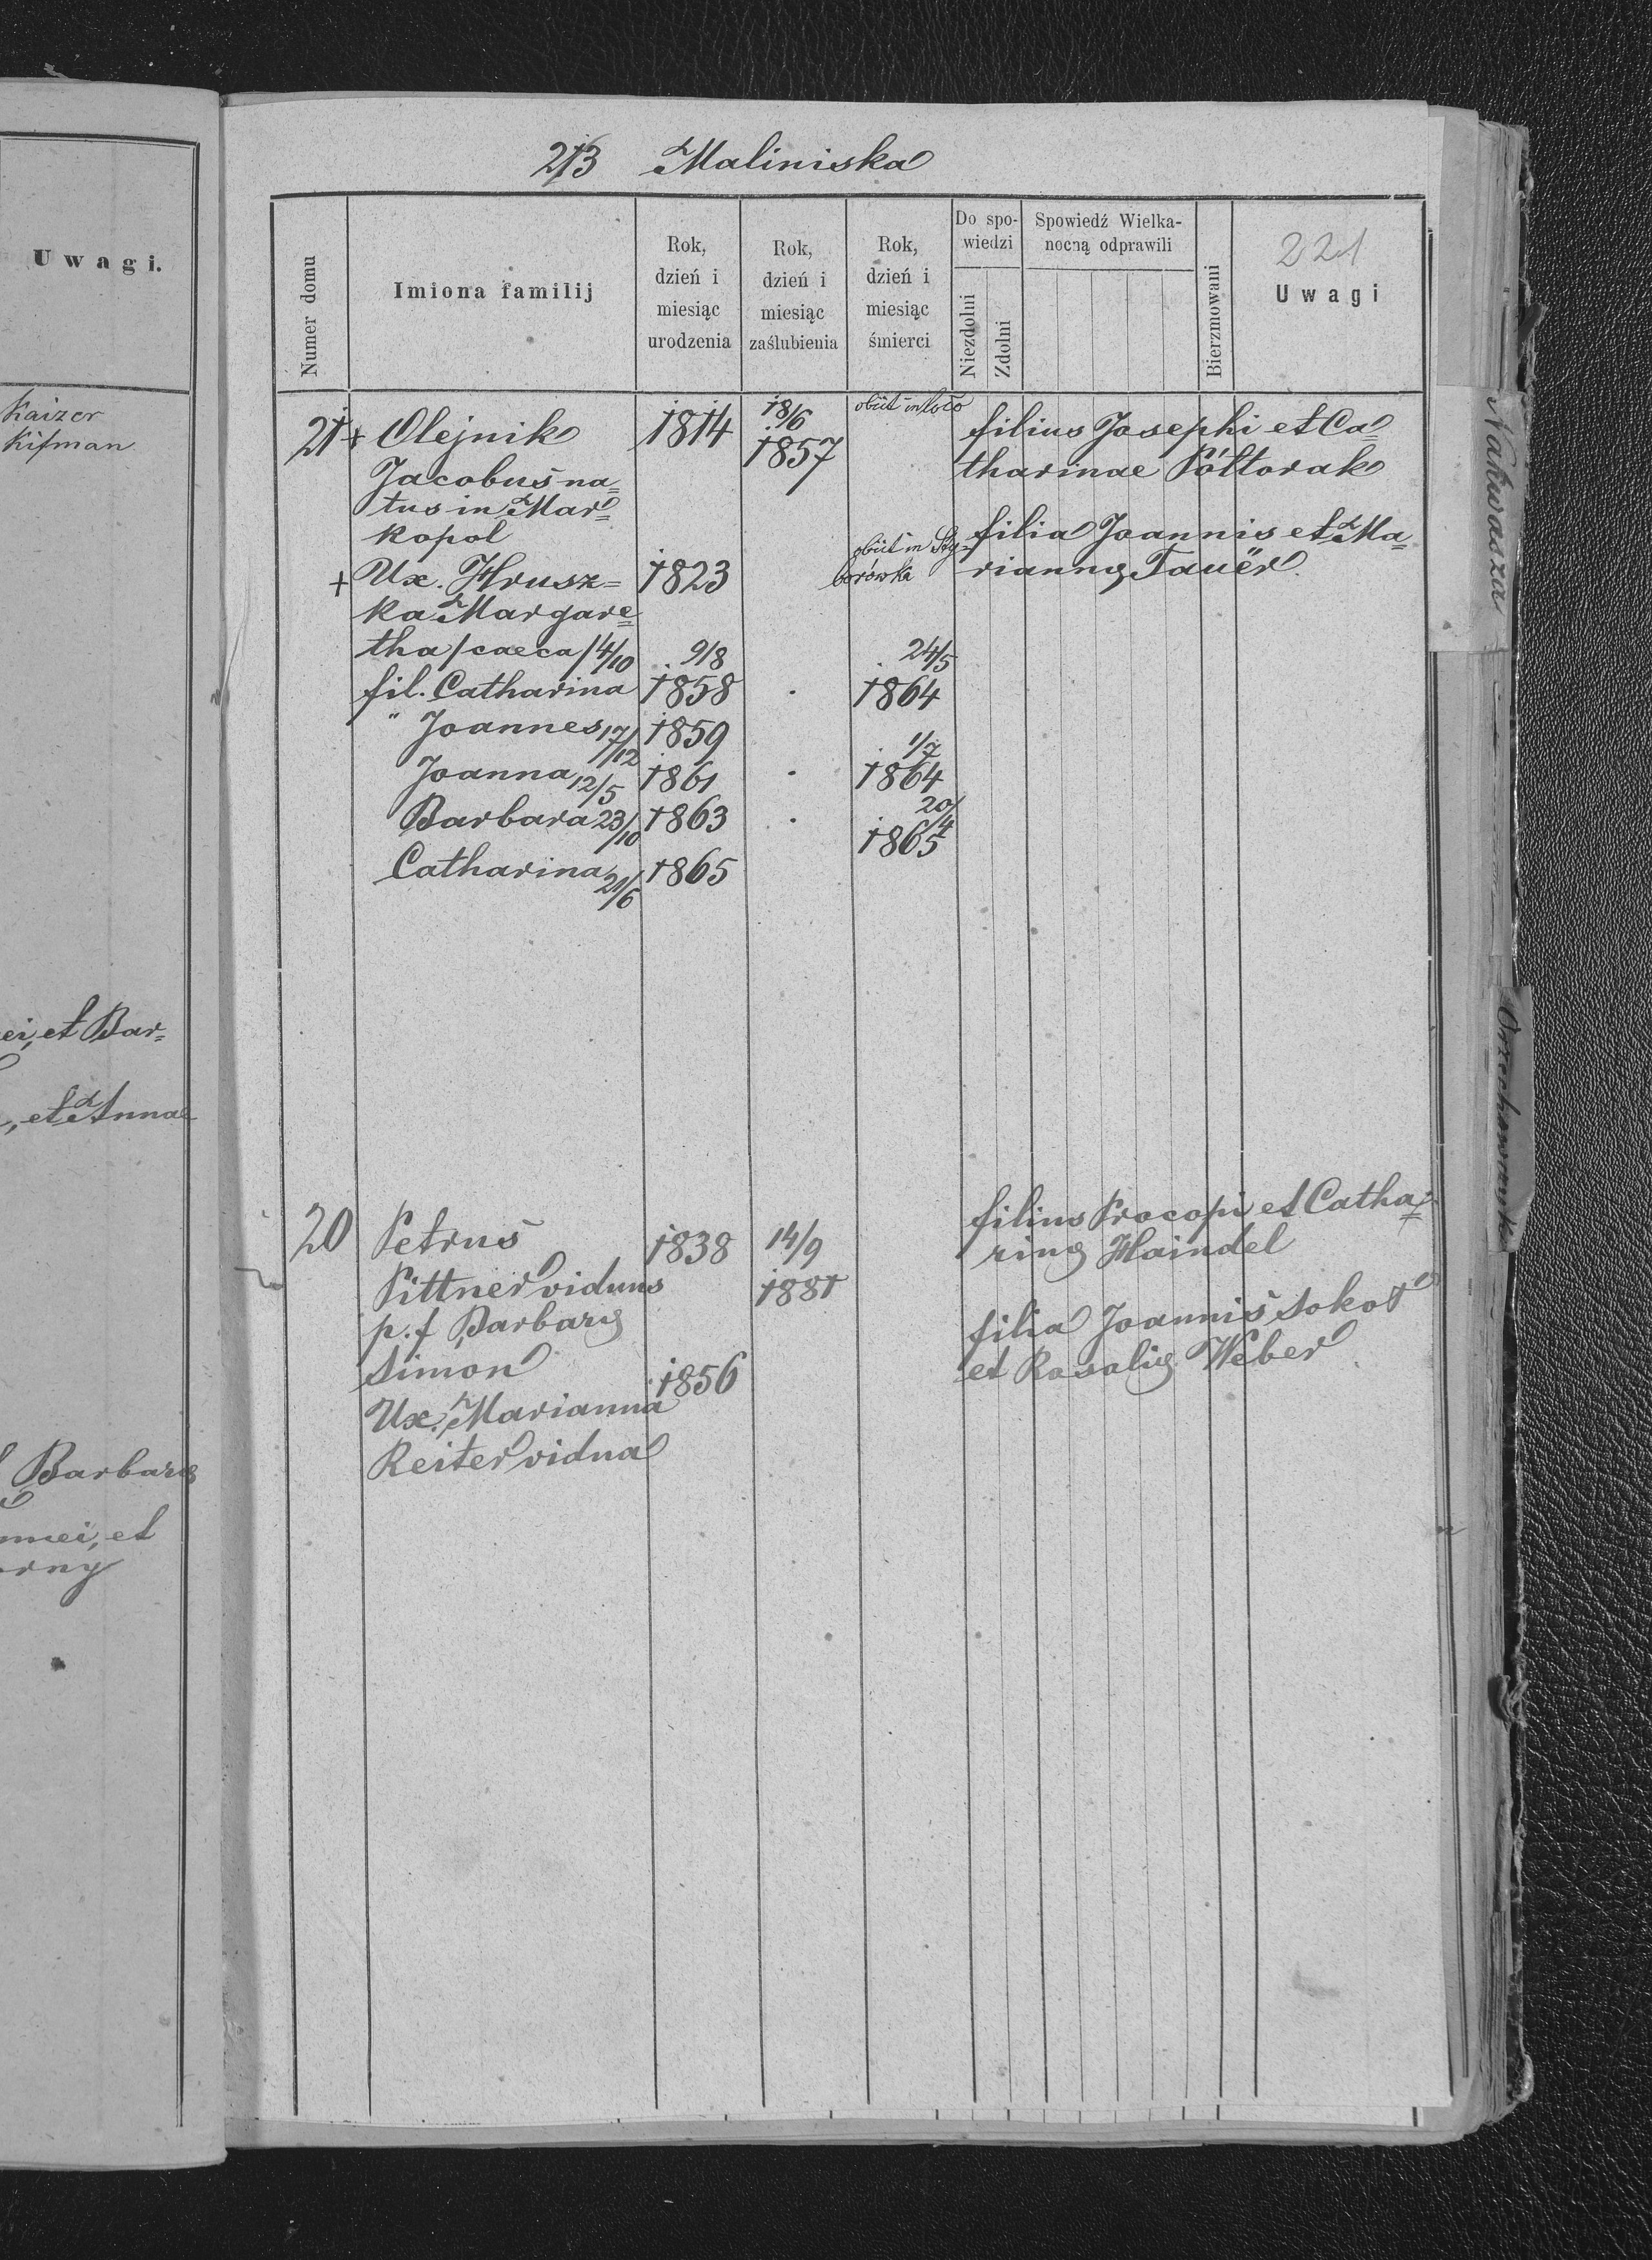 Uwagi.
Kaizer
Kifman
ei, et Bar=
, et Annae
Barbarę
et
213 Maliniska
Numer domu
Imiona familij
Rok,
dzień i
miesiąc
urodzenia
Rok,
dzień i
miesiąc
zaślubienia
Rok,
dzień i
miesiąc
śmierci
Do spo-
wiedzi
Niezdolni
Zdolni
Spowiedź Wielka-
nocną odprawili
Bierzmowani
221
Uwagi
21 + Olejnik 1814 18/6 obiit in loco filius Josephi et Ca=
Jacobus na= 1857 tharinae Półtorak
tus in Mar=
kopol obiit in Sty- filia Joannis et Ma=
+ Ux. Hrusz= 1823 borówka riannę Tauer.
ka Margare=
tha /caeca/ 4/10 9/8 24/5
fil. Catharina 1858 . 1864
" Joannes 17/12 1859 1/7
Joanna 12/5 1861 . 1864
Barbara 23/10 1863 . 20/4
1865
Catharina 21/6 1865
20 Petrus 1838 14/9 filius Procopi et Catha=
Pittner viduus 1881 rinę Haindel
p. f Barbarę filia Joannis Sokot
Simon 1856 et Rosalię Weber
Ux. Marianna
Reiter vidua
Nakwasza